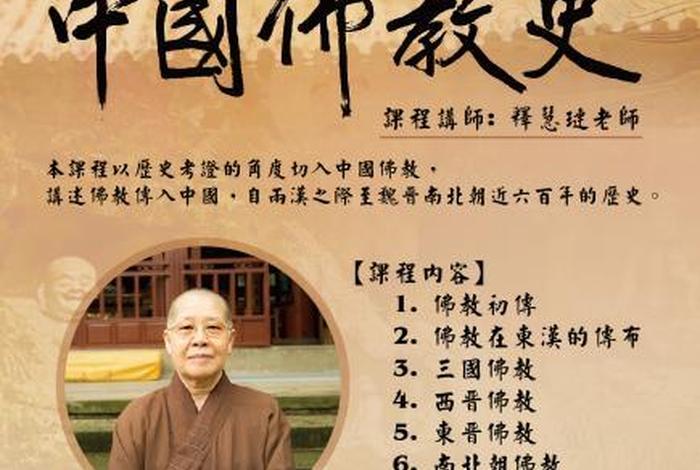 中國佛教史
課程講師：釋慧璉老師
本課程以歷史考證的角度切入中國佛教，
講述佛教傳入中國，自兩漢之際至魏晉南北朝近六百年的歷史。
【課程內容】
1. 佛教初傳
2. 佛教在東漢的傳布
3. 三國佛教
4. 西晉佛教
5. 東晉佛教
6. 南北朝佛教